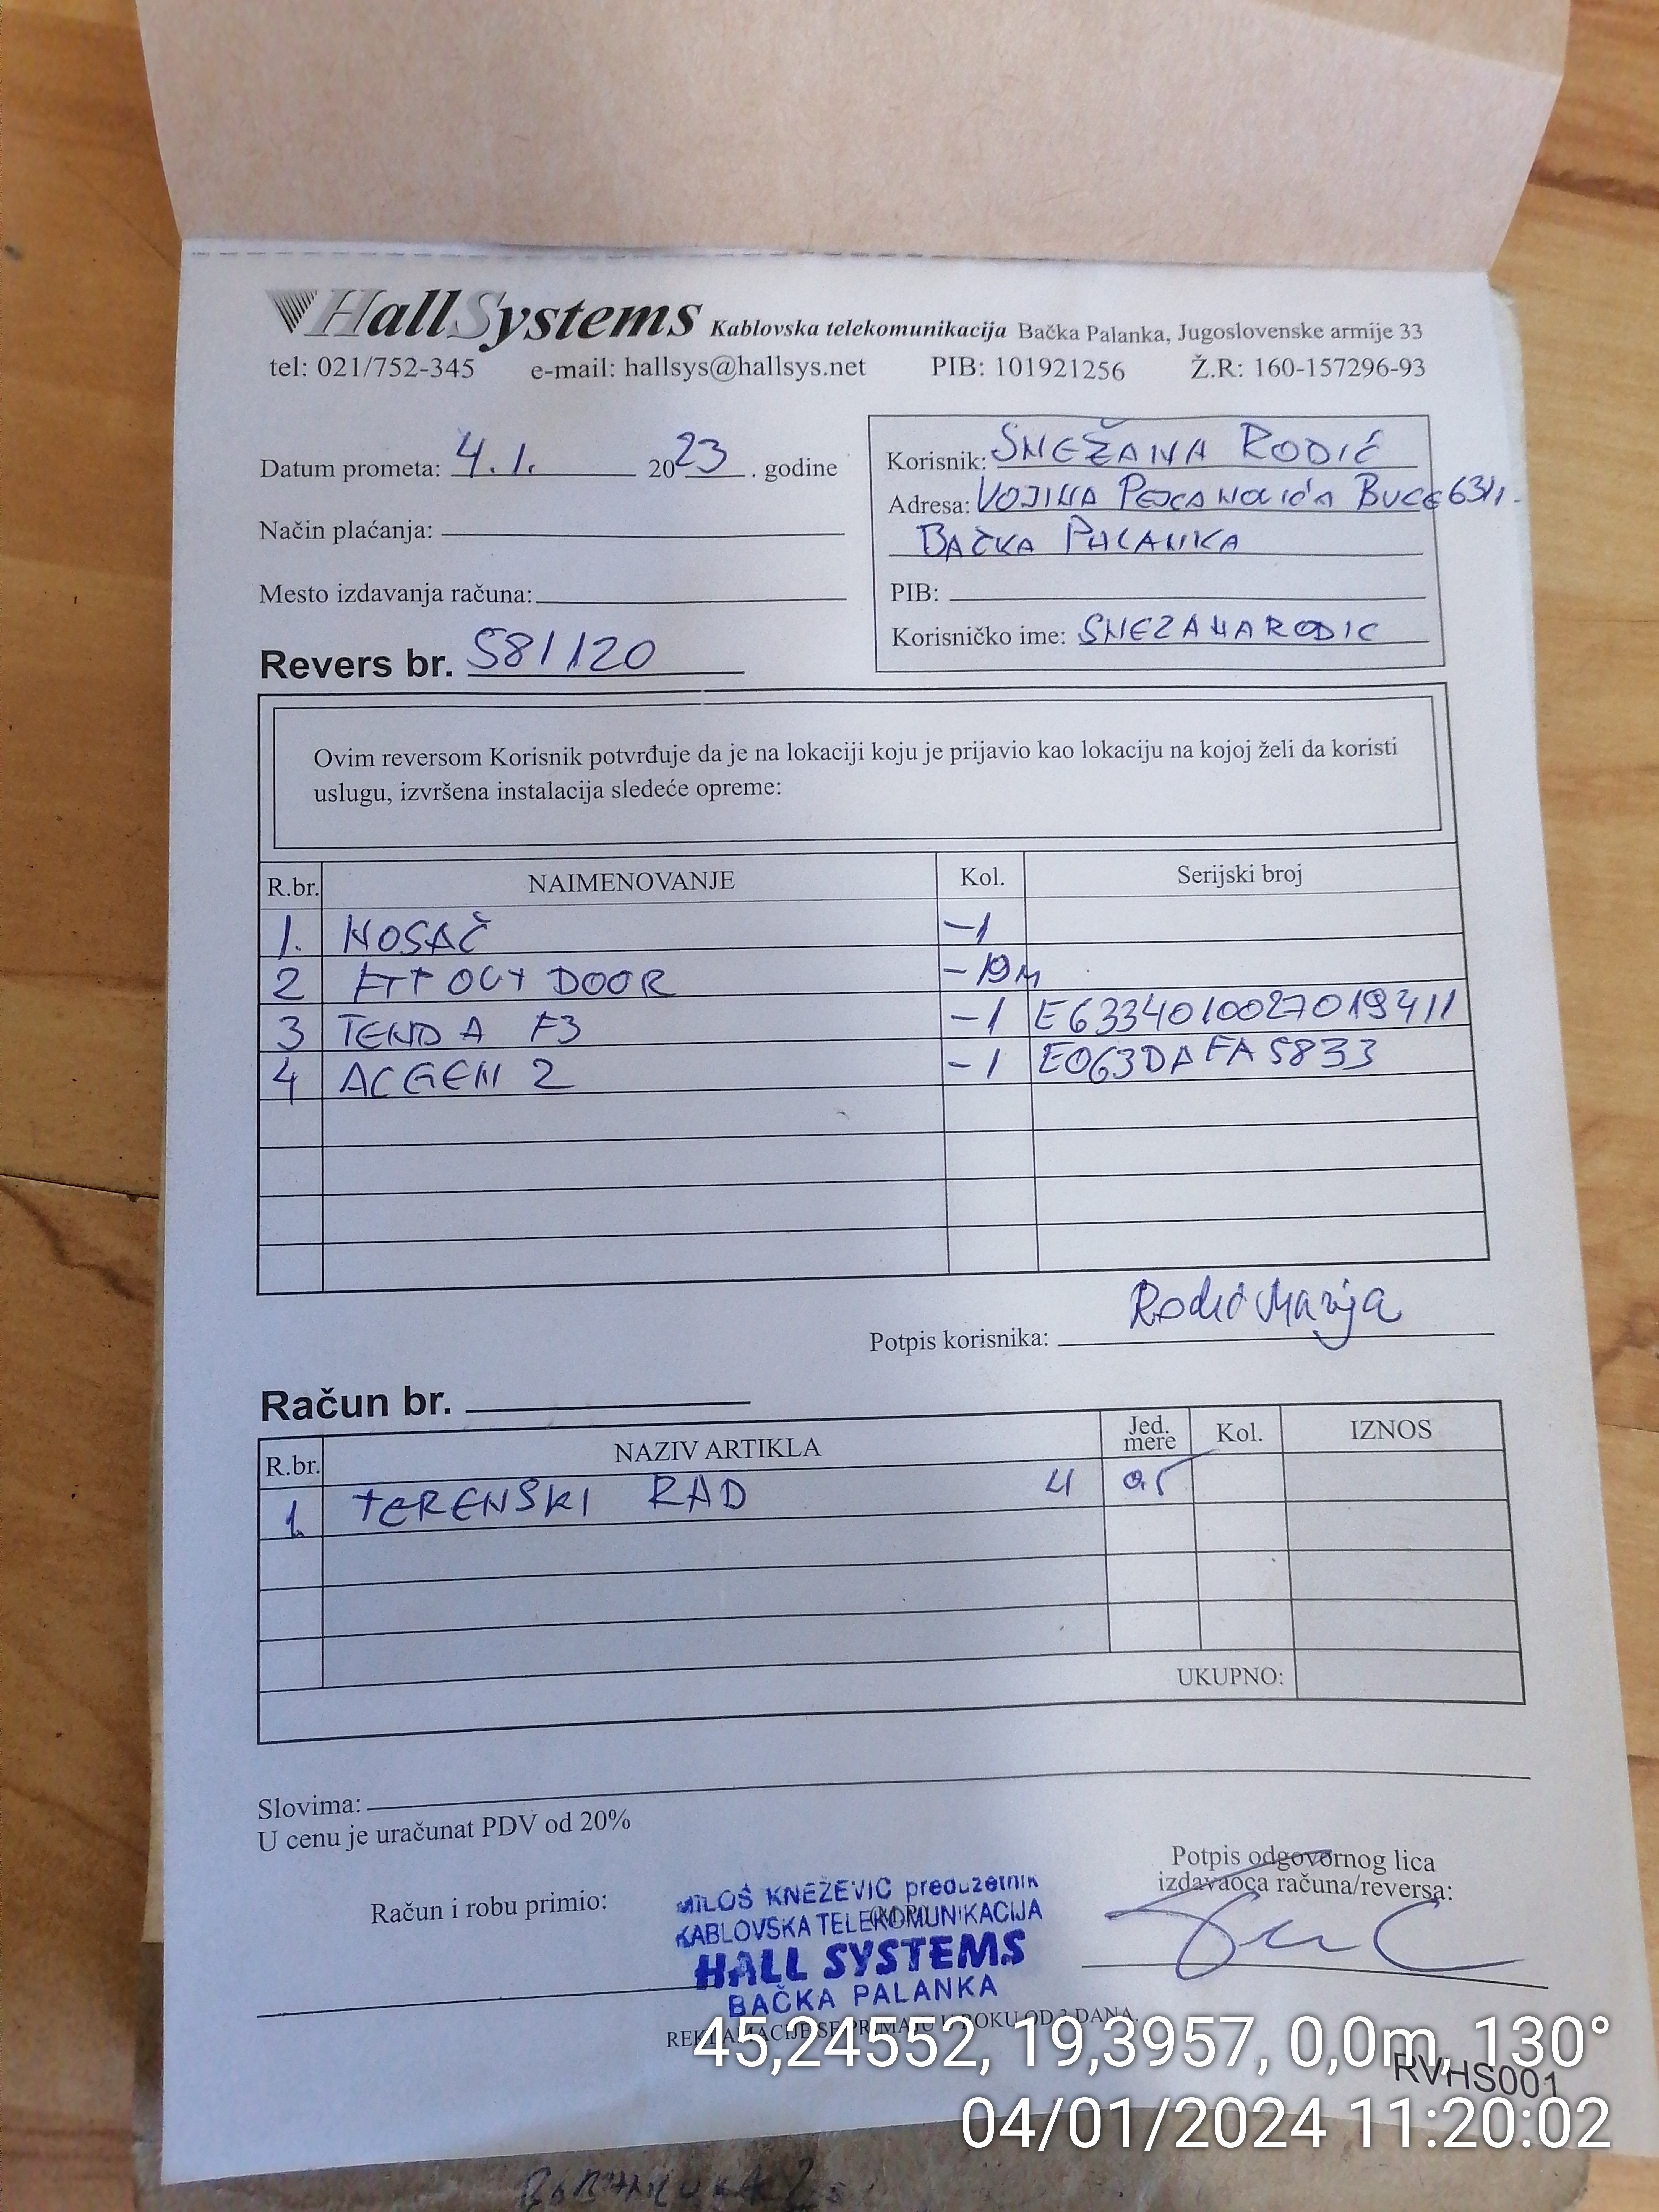 HallSystems Kablovska telekomunikacija Bačka Palanka, Jugoslovenske armije 33
tel: 021/752-345 e-mail: hallsys@hallsys.net PIB: 101921256 Ž.R: 160-157296-93
Datum prometa: 4.1. 2023. godine
Način plaćanja:
Mesto izdavanja računa:
Revers br. 581120
Korisnik: SNEŽANA RODIĆ
Adresa: VOJINA
BAČKA PALANKA
PIB:
Korisničko ime: SNEZANARODIC
Ovim reversom Korisnik potvrđuje da je na lokaciji koju je prijavio kao lokaciju na kojoj želi da koristi
uslugu, izvršena instalacija sledeće opreme:
R.br. NAIMENOVANJE Kol. Serijski broj
1. NOSAČ -1
2 FTP OUT DOOR -19M
3 TENDA F3 -1 E6334010027019411
4 ACGEN 2 -1 E063DAFA5833
Potpis korisnika: Rodić Marija
Račun br.
R.br. NAZIV ARTIKLA Jed. mere Kol. IZNOS
1. TERENSKI RAD
UKUPNO:
Slovima:
U cenu je uračunat PDV od 20%
Račun i robu primio:
MILOŠ KNEŽEVIĆ preduzetnik
KABLOVSKA TELEKOMUNIKACIJA
HALL SYSTEMS
BAČKA PALANKA
Potpis odgovornog lica
izdavaoca računa/reversa:
REKLAMACIJE SE PRIMAJU U ROKU OD 3 DANA.
RVHS001
45,24552, 19,3957, 0,0m, 130°
04/01/2024 11:20:02